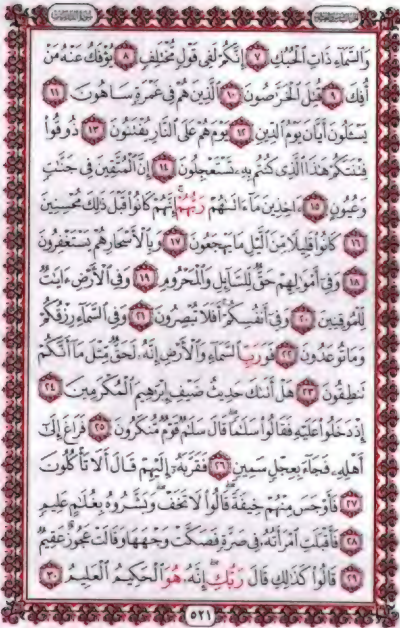 وَالسَّمَاءِ ذَاتِ الْحُبُكِ ٧ إِنَّكُمْ لَفِي قَوْلٍ مُّخْتَلِفٍ ٨ يُؤْفَكُ عَنْهُ مَنْ
أُفِكَ ٩ قُتِلَ الْخَرَّاصُونَ ١٠ الَّذِينَ هُمْ فِي غَمْرَةٍ سَاهُونَ ١١
يَسْـَٔلُونَ أَيَّانَ يَوْمُ الدِّينِ ١٢ يَوْمَ هُمْ عَلَى النَّارِ يُفْتَنُونَ ١٣ ذُوقُوا
فِتْنَتَكُمْ هَٰذَا الَّذِي كُنتُم بِهِ تَسْتَعْجِلُونَ ١٤ إِنَّ الْمُتَّقِينَ فِي جَنَّٰتٍ
وَعُيُونٍ ١٥ ءَاخِذِينَ مَا ءَاتَىٰهُمْ رَبُّهُمْ ۚ إِنَّهُمْ كَانُوا قَبْلَ ذَٰلِكَ مُحْسِنِينَ
١٦ كَانُوا قَلِيلًا مِّنَ الَّيْلِ مَا يَهْجَعُونَ ١٧ وَبِالْأَسْحَارِ هُمْ يَسْتَغْفِرُونَ
١٨ وَفِي أَمْوَٰلِهِمْ حَقٌّ لِّلسَّائِلِ وَالْمَحْرُومِ ١٩ وَفِي الْأَرْضِ ءَايَٰتٌ
لِّلْمُوقِنِينَ ٢٠ وَفِي أَنفُسِكُمْ ۚ أَفَلَا تُبْصِرُونَ ٢١ وَفِي السَّمَاءِ رِزْقُكُمْ
وَمَا تُوعَدُونَ ٢٢ فَوَرَبِّ السَّمَاءِ وَالْأَرْضِ إِنَّهُ لَحَقٌّ مِّثْلَ مَا أَنَّكُمْ
تَنطِقُونَ ٢٣ هَلْ أَتَىٰكَ حَدِيثُ ضَيْفِ إِبْرَٰهِيمَ الْمُكْرَمِينَ ٢٤
إِذْ دَخَلُوا عَلَيْهِ فَقَالُوا سَلَٰمًا ۖ قَالَ سَلَٰمٌ قَوْمٌ مُّنكَرُونَ ٢٥ فَرَاغَ إِلَىٰ
أَهْلِهِ فَجَاءَ بِعِجْلٍ سَمِينٍ ٢٦ فَقَرَّبَهُ إِلَيْهِمْ قَالَ أَلَا تَأْكُلُونَ
٢٧ فَأَوْجَسَ مِنْهُمْ خِيفَةً ۖ قَالُوا لَا تَخَفْ ۖ وَبَشَّرُوهُ بِغُلَٰمٍ عَلِيمٍ
٢٨ فَأَقْبَلَتِ امْرَأَتُهُ فِي صَرَّةٍ فَصَكَّتْ وَجْهَهَا وَقَالَتْ عَجُوزٌ عَقِيمٌ
٢٩ قَالُوا كَذَٰلِكِ قَالَ رَبُّكِ ۖ إِنَّهُ هُوَ الْحَكِيمُ الْعَلِيمُ ٣٠
٥٢١